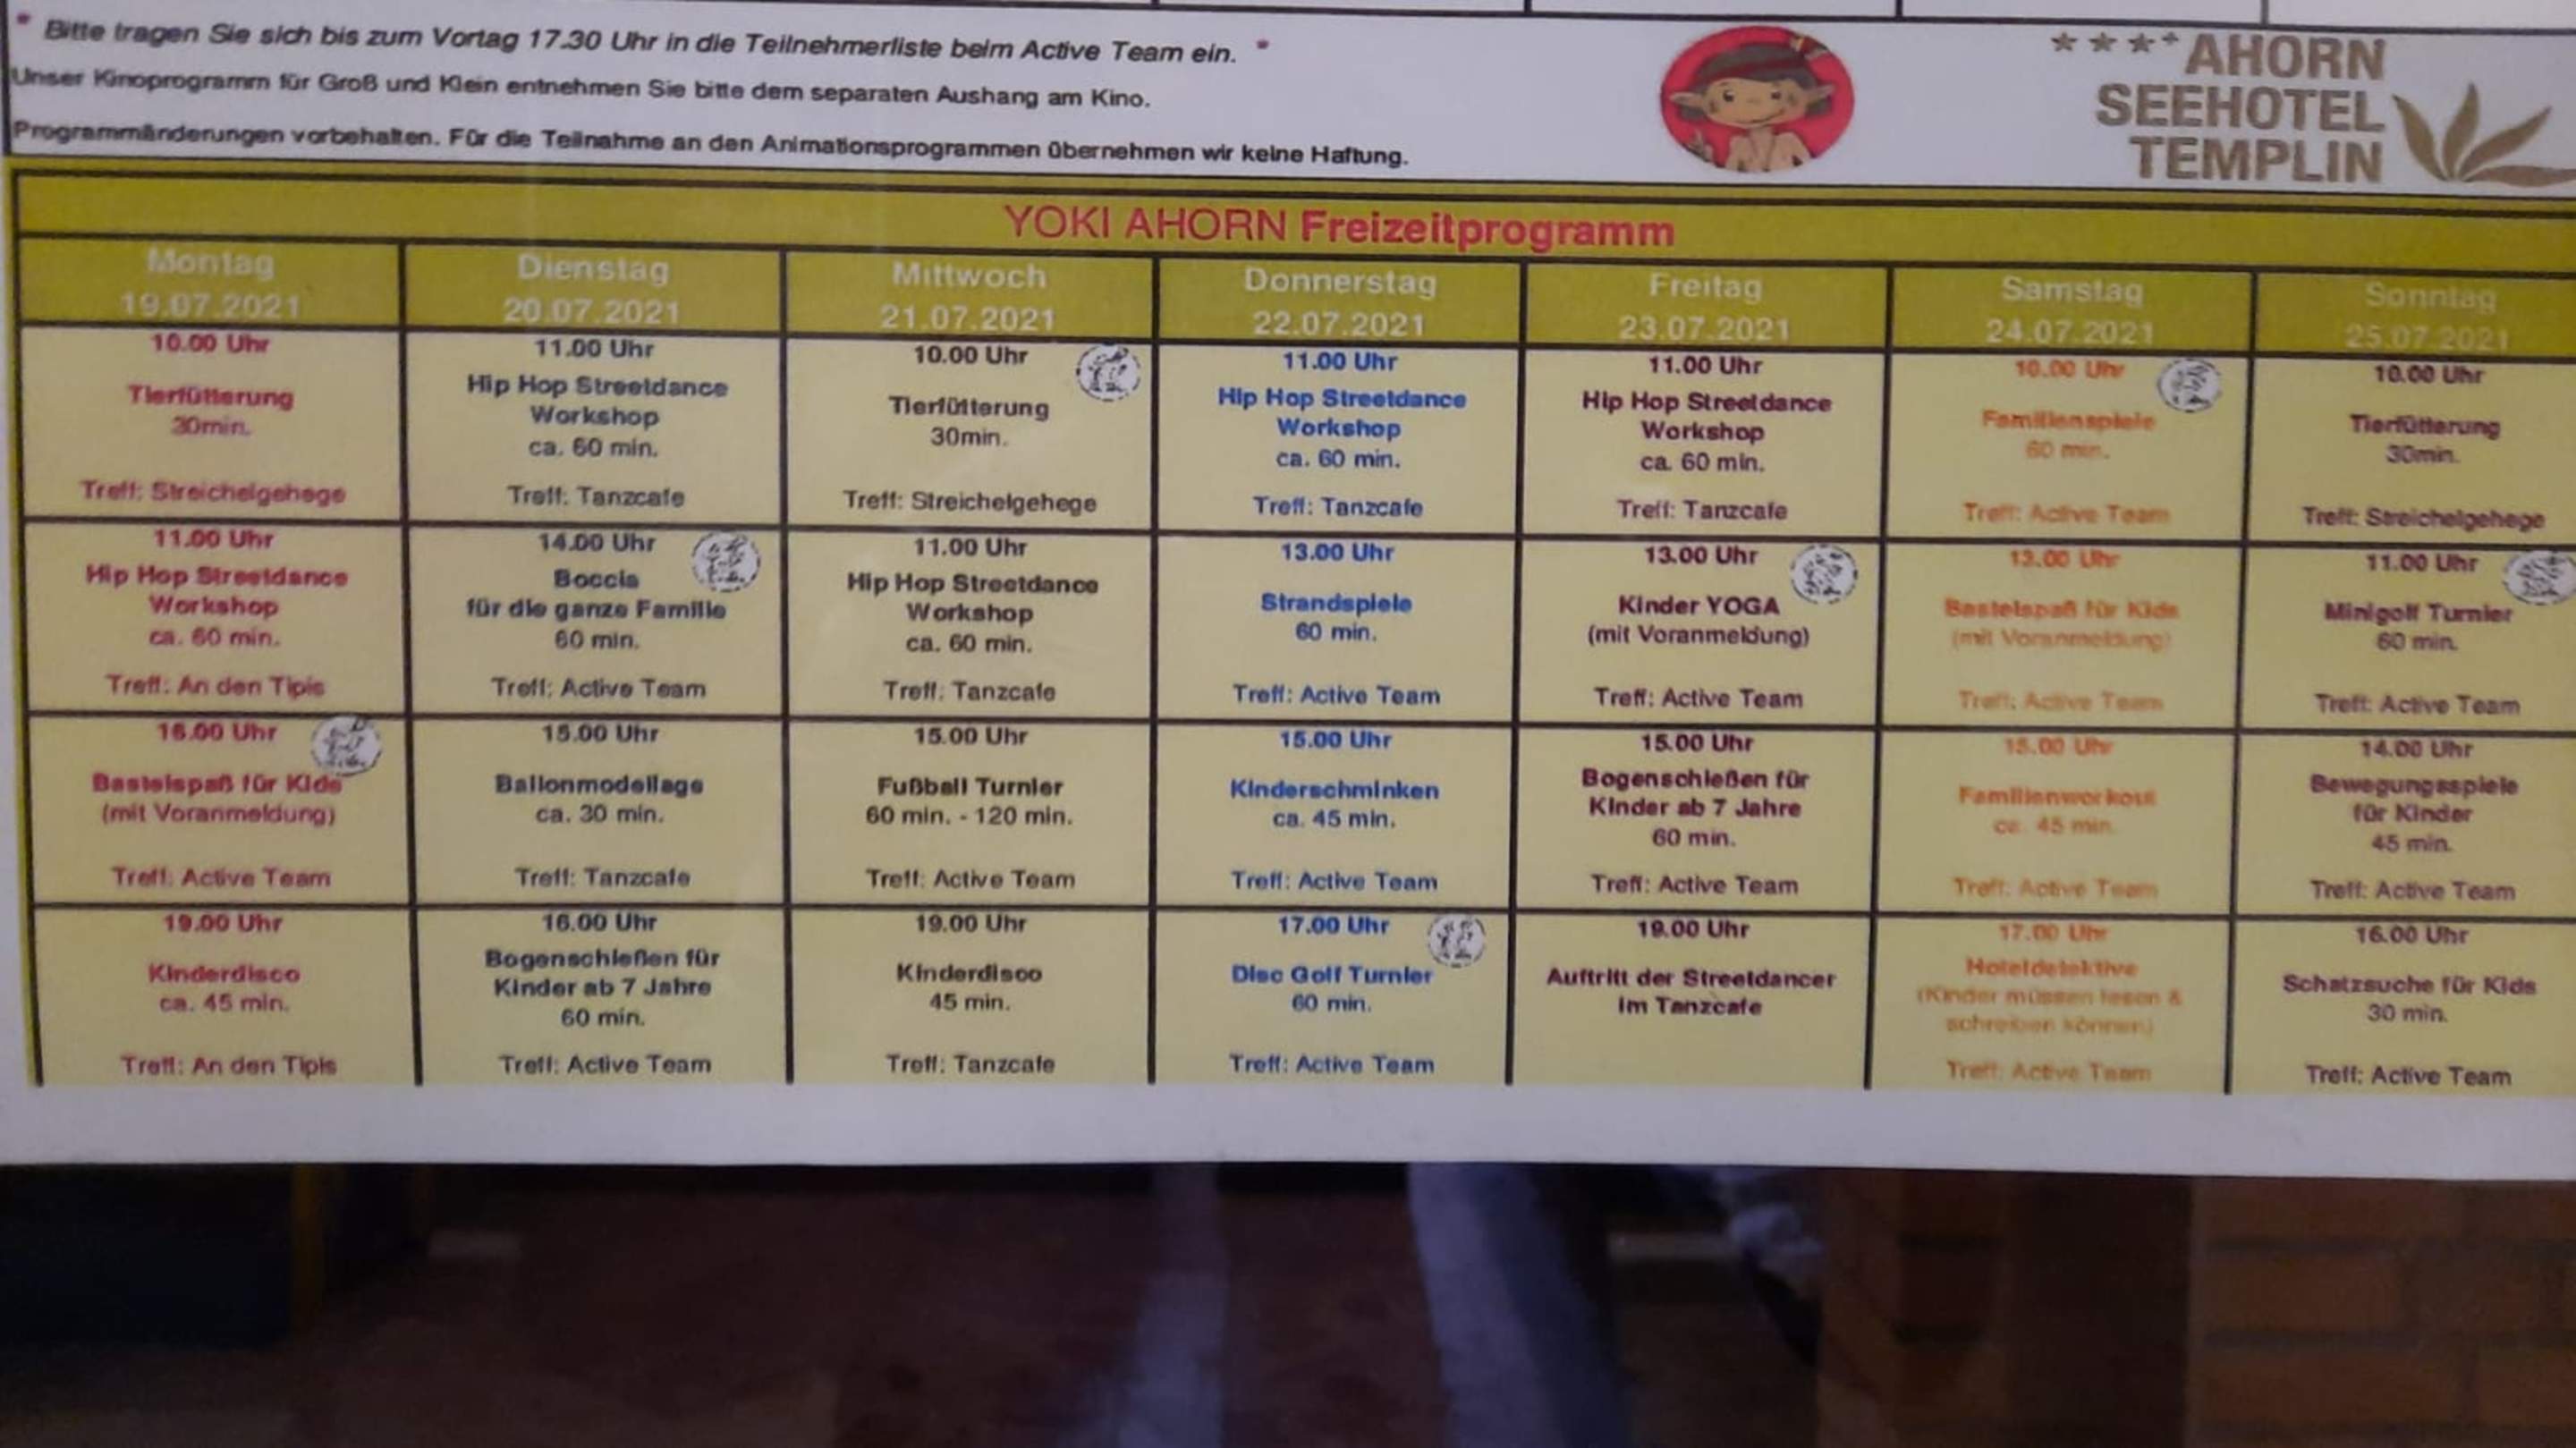 * Bitte tragen Sie sich bis zum Vortag 17.30 Uhr in die Teilnehmerliste beim Active Team ein. *
Unser Kinoprogramm für Groß und Klein entnehmen Sie bitte dem separaten Aushang am Kino.
Programmänderungen vorbehalten. Für die Teilnahme an den Animationsprogrammen übernehmen wir keine Haftung.
****AHORN
SEEHOTEL
TEMPLIN
YOKI AHORN Freizeitprogramm
Montag
19.07.2021
10.00 Uhr
Tierfütterung
30min.
Treff: Streichelgehege
11.00 Uhr
Hip Hop Streetdance
Workshop
ca. 60 min.
Treff: An den Tipis
16.00 Uhr
Bastelspaß für Kids
(mit Voranmeldung)
Treff: Active Team
19.00 Uhr
Kinderdisco
ca. 45 min.
Treff: An den Tipis
Dienstag
20.07.2021
11.00 Uhr
Hip Hop Streetdance
Workshop
ca. 60 min.
Treff: Tanzcafe
14.00 Uhr
Boccia
für die ganze Familie
60 min.
Treff: Active Team
15.00 Uhr
Ballonmodellage
ca. 30 min.
Treff: Tanzcafe
16.00 Uhr
Bogenschießen für
Kinder ab 7 Jahre
60 min.
Treff: Active Team
Mittwoch
21.07.2021
10.00 Uhr
Tierfütterung
30min.
Treff: Streichelgehege
11.00 Uhr
Hip Hop Streetdance
Workshop
ca. 60 min.
Treff: Tanzcafe
15.00 Uhr
Fußball Turnier
60 min. - 120 min.
Treff: Active Team
19.00 Uhr
Kinderdisco
45 min.
Treff: Tanzcafe
Donnerstag
22.07.2021
11.00 Uhr
Hip Hop Streetdance
Workshop
ca. 60 min.
Treff: Tanzcafe
13.00 Uhr
Strandspiele
60 min.
Treff: Active Team
15.00 Uhr
Kinderschminken
ca. 45 min.
Treff: Active Team
17.00 Uhr
Disc Golf Turnier
60 min.
Treff: Active Team
Freitag
23.07.2021
11.00 Uhr
Hip Hop Streetdance
Workshop
ca. 60 min.
Treff: Tanzcafe
13.00 Uhr
Kinder YOGA
(mit Voranmeldung)
Treff: Active Team
15.00 Uhr
Bogenschießen für
Kinder ab 7 Jahre
60 min.
Treff: Active Team
19.00 Uhr
Auftritt der Streetdancer
im Tanzcafe
Samstag
24.07.2021
10.00 Uhr
Familienspiele
60 min.
Treff: Active Team
13.00 Uhr
Bastelspaß für Kids
(mit Voranmeldung)
Treff: Active Team
15.00 Uhr
Familienworkout
ca. 45 min.
Treff: Active Team
17.00 Uhr
Hoteldetektive
(Kinder müssen lesen &
schreiben können)
Treff: Active Team
Sonntag
25.07.2021
10.00 Uhr
Tierfütterung
30min.
Treff: Streichelgehege
11.00 Uhr
Minigolf Turnier
60 min.
Treff: Active Team
14.00 Uhr
Bewegungsspiele
für Kinder
45 min.
Treff: Active Team
16.00 Uhr
Schatzsuche für Kids
30 min.
Treff: Active Team